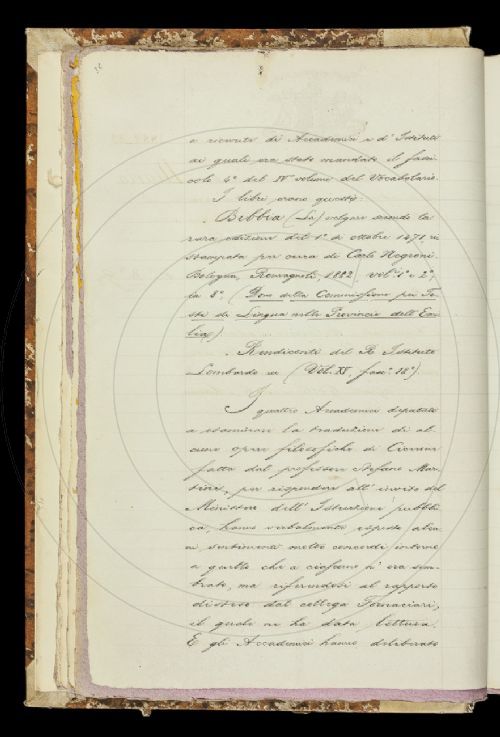 e ricevute di Accademie e d'Istituti
ai quali era stato mandato il fasci-
colo 4º del IV volume del Vocabolario.
I libri erano questi:
Bibbia (La) volgare secondo la
rara edizione del 1º di ottobre 1471, ri
stampata per cura di Carlo Negroni.
Bologna, Romagnoli, 1882 vol.i 1º e 2º,
in 8º. (Dono della Commissione pei Te-
sti di Lingua nelle Provincie dell'Emi-
lia).
Rendiconti del R. Istituto
Lombardo ec (Vol. XV, fasc. 18º).
I quattro Accademici deputati
a esaminare la traduzione di al-
cune opere filosofiche di Cicerone
fatta dal professore Stefano Mar-
tini, per rispondere all'invito del
Ministero dell'Istruzione pubbli
ca, hanno verbalmente esposto alcu
ni sentimenti molto concordi intorno
a quello che a ciascuno n'era sem-
brato, ma riferendosi al rapporto
disteso dal collega Fornaciari,
il quale ne ha data lettura.
E gli Accademici hanno deliberato